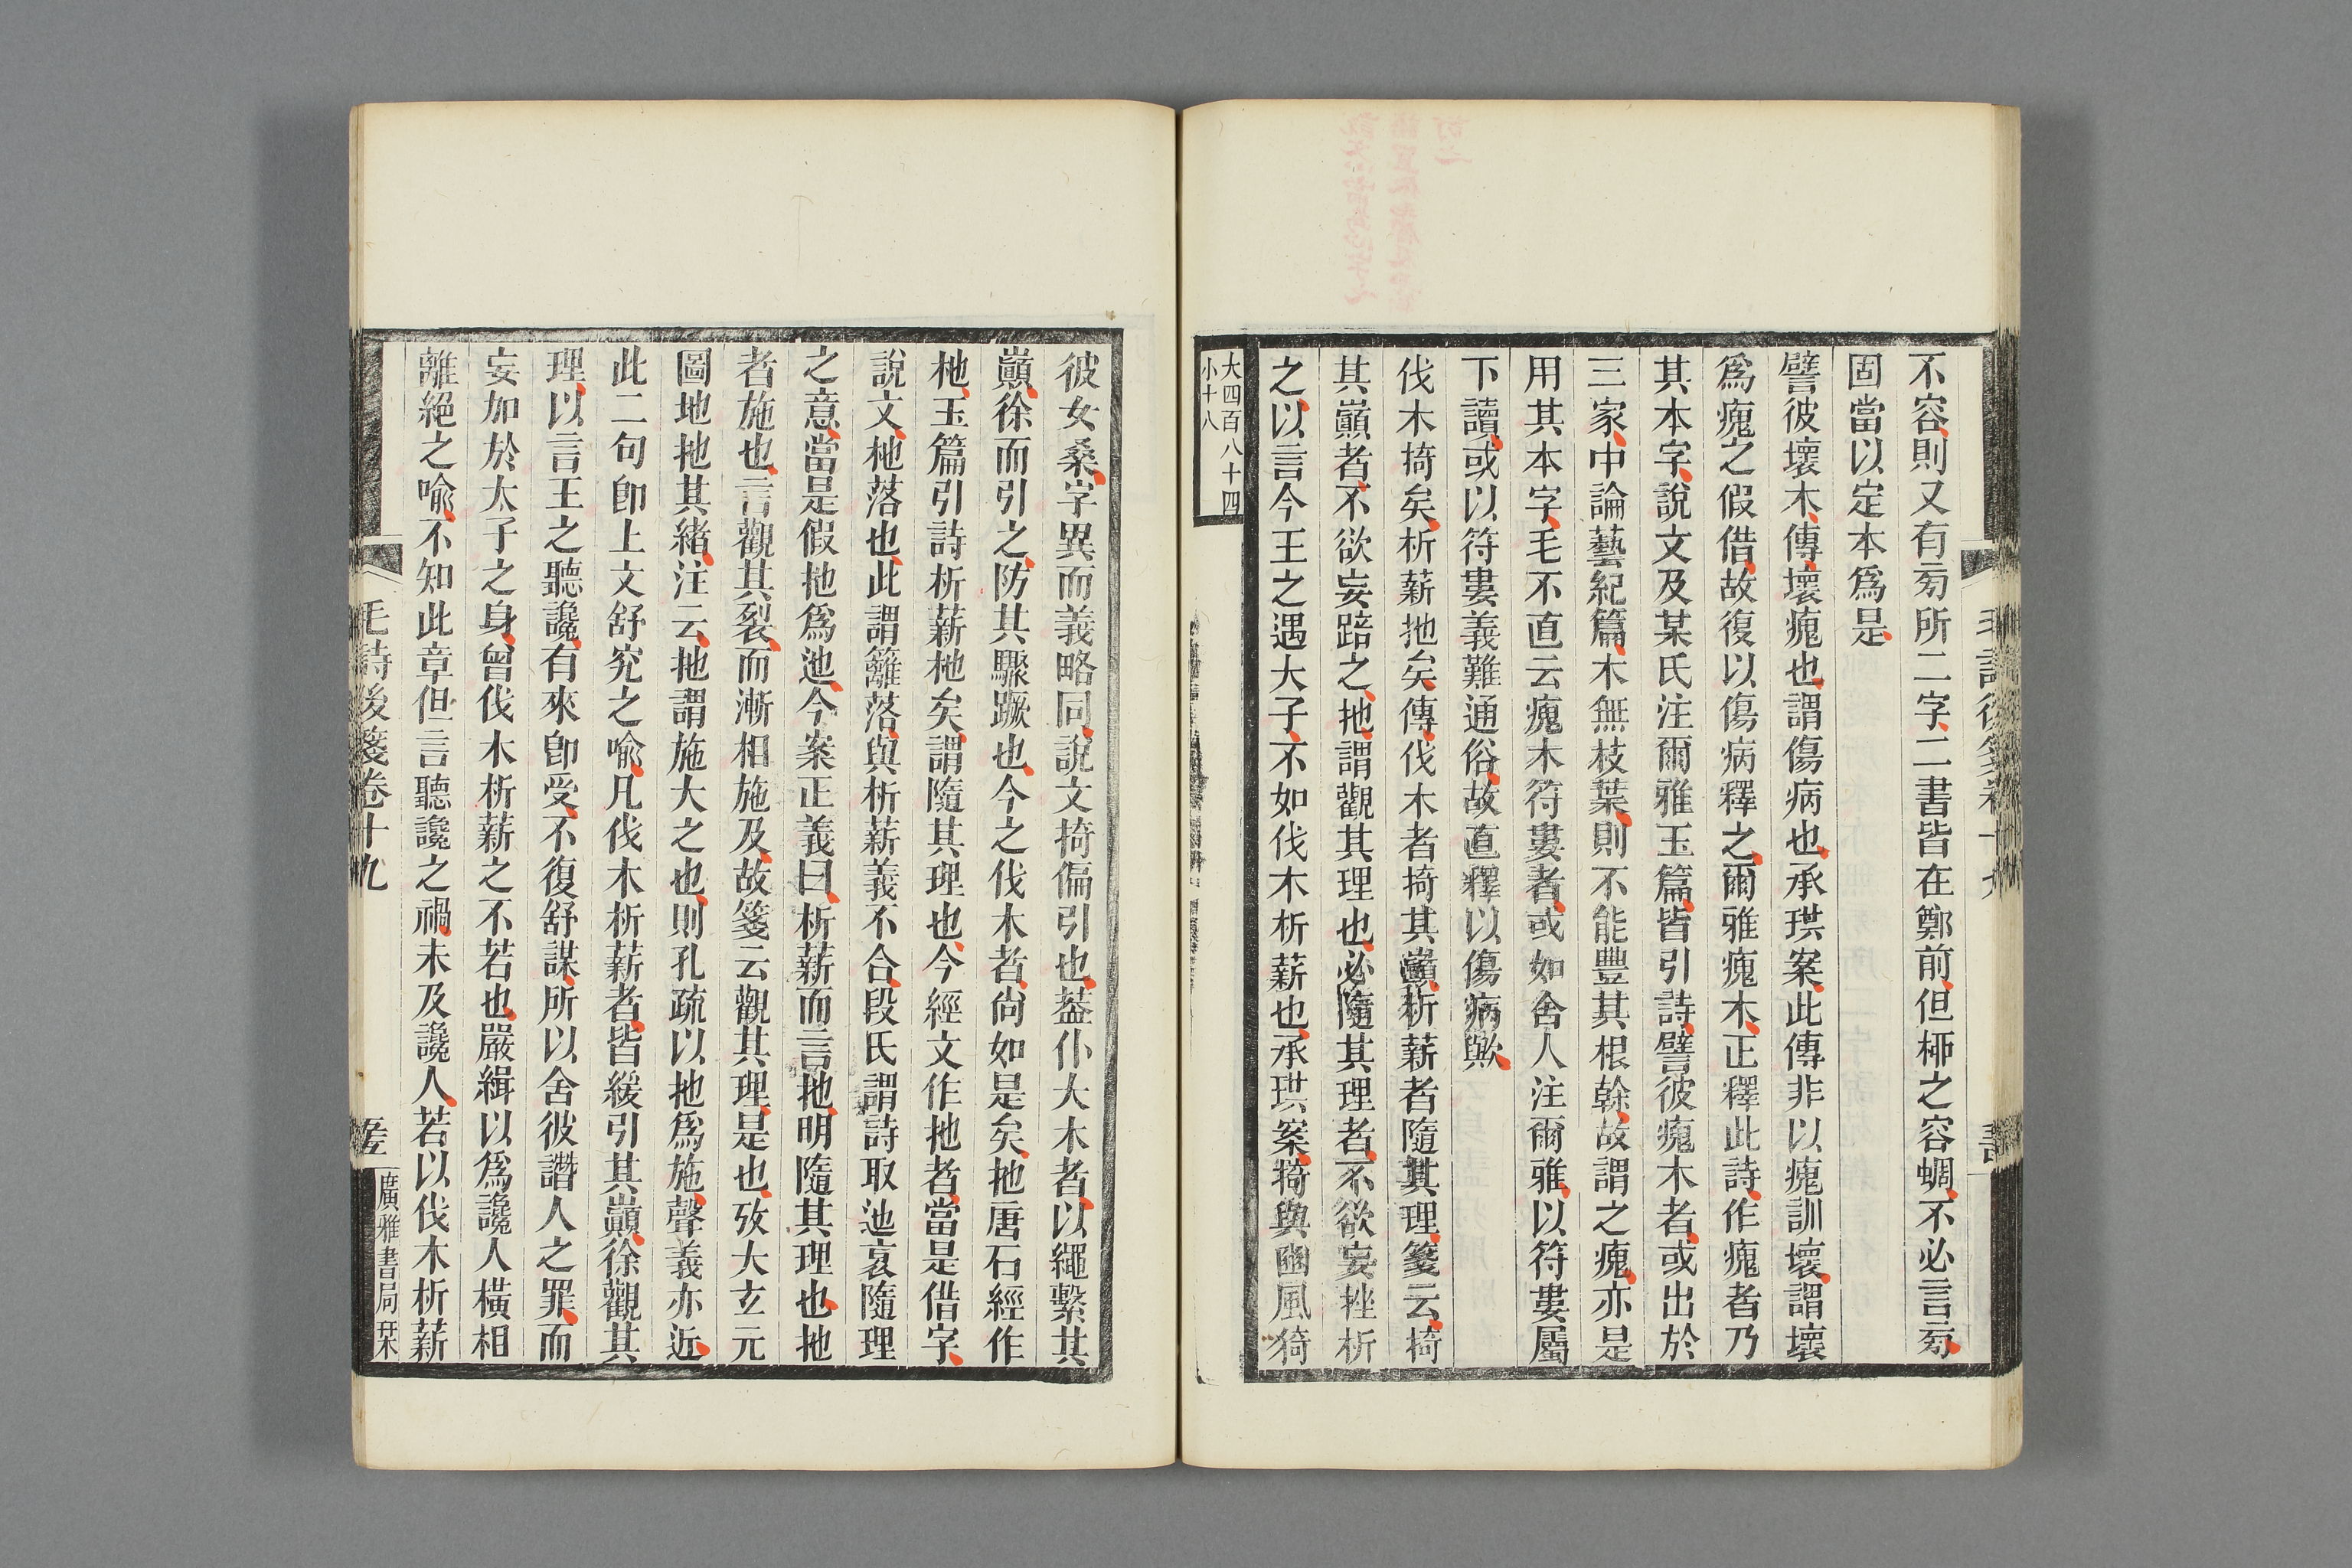 不容則又有芴所二字二書皆在鄭前但桺之容蜩不必言芴
固當以定本爲是
譬彼壞木傳壞瘣也謂傷病也承珙案此傳非以瘣訓壞謂壞
爲瘣之假借故復以傷病釋之爾雅瘣木正釋此詩作瘣者乃
其本字說文及某氏注爾雅玉篇皆引詩譬彼瘣木者或出於
三家中論藝紀篇木無枝葉則不能豐其根榦故謂之瘣亦是
用其本字毛不直云瘣木符婁者或如舍人注爾雅以符婁屬
下讀或以符婁義難通俗故直釋以傷病歟
伐木掎矣析薪扡矣傳伐木者掎其巔析薪者隨其理箋云掎
其巔者不欲妄踣之扡謂觀其理也必隨其理者不欲妄挫析
之以言今王之遇大子不如伐木析薪也承珙案掎與豳風猗
大四百八十四
小十八
彼女桑字異而義略同說文掎偏引也葢仆大木者以繩繫其
巔徐而引之防其驟蹶也今之伐木者尙如是矣扡唐石經作
杝玉篇引詩析薪杝矣謂隨其理也今經文作扡者當是借字
說文杝落也此謂籬落與析薪義不合段氏謂詩取迆衺隨理
之意當是假扡爲迆今案正義曰析薪而言扡明隨其理也扡
者施也言觀其裂而漸相施及故箋云觀其理是也攷大玄元
圖地扡其緒注云扡謂施大之也則孔疏以扡爲施聲義亦近
此二句卽上文舒究之喩凡伐木析薪者皆緩引其巔徐觀其
理以言王之聽讒有來卽受不復舒謀所以舍彼譖人之罪而
妄加於太子之身曾伐木析薪之不若也嚴緝以爲讒人橫相
離絕之喩不知此章但言聽讒之禍未及讒人若以伐木析薪
毛詩後箋卷十九
廣雅書局栞